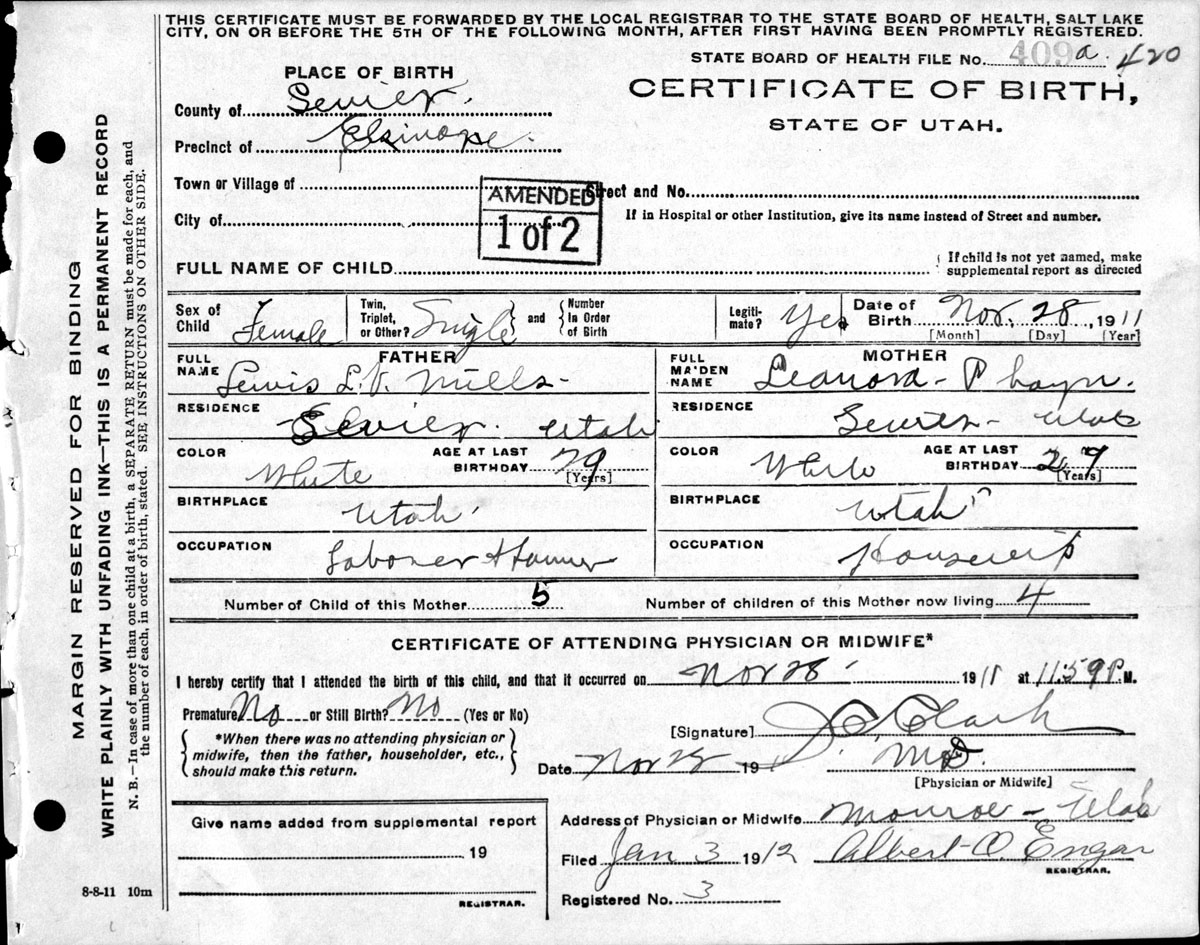 THIS CERTIFICATE MUST BE FORWARDED BY THE LOCAL REGISTRAR TO THE STATE BOARD OF HEALTH, SALT LAKE
CITY, ON OR BEFORE THE 5TH OF THE FOLLOWING MONTH, AFTER FIRST HAVING BEEN PROMPTLY REGISTERED.
STATE BOARD OF HEALTH FILE No. 409a 420
PLACE OF BIRTH
CERTIFICATE OF BIRTH,
STATE OF UTAH.
County of Sevier.
Precinct of Elsinore.
Town or Village of
Street and No.
AMENDED
1 of 2
City of
If in Hospital or other Institution, give its name instead of Street and number.
FULL NAME OF CHILD
If child is not yet named, make
supplemental report as directed
Sex of Child Female
Twin, Triplet, or Other? Single and Number In Order of Birth
Legiti-mate? Yes
Date of Birth Nov. 28, 1911
[Month] [Day] [Year]
FATHER
FULL NAME Lewis L.V. Mills-
MOTHER
FULL MAIDEN NAME Leanora-
RESIDENCE Sevier. Utah
RESIDENCE Sevier- Utah
COLOR White AGE AT LAST BIRTHDAY 29 [Years]
COLOR White AGE AT LAST BIRTHDAY 27 [Years]
BIRTHPLACE Utah
BIRTHPLACE Utah
OCCUPATION Laborer & Farmer
OCCUPATION Housewife
Number of Child of this Mother 5
Number of children of this Mother now living 4
CERTIFICATE OF ATTENDING PHYSICIAN OR MIDWIFE*
I hereby certify that I attended the birth of this child, and that it occurred on Nov 28 1911 at 11:59 P.M.
Premature No or Still Birth? No (Yes or No)
*When there was no attending physician or
midwife, then the father, householder, etc.,
should make this return.
[Signature] Clark
M.D.
Date Nov 191
[Physician or Midwife]
Give name added from supplemental report
19
REGISTRAR.
Address of Physician or Midwife Monroe - Utah
Filed Jan 3 1912 Albert O. Engar
REGISTRAR.
Registered No. 3
8-8-11 10m
MARGIN RESERVED FOR BINDING
WRITE PLAINLY WITH UNFADING INK—THIS IS A PERMANENT RECORD
N. B.—In case of more than one child at a birth, a SEPARATE RETURN must be made for each, and
the number of each, in order of birth, stated. SEE INSTRUCTIONS ON OTHER SIDE.